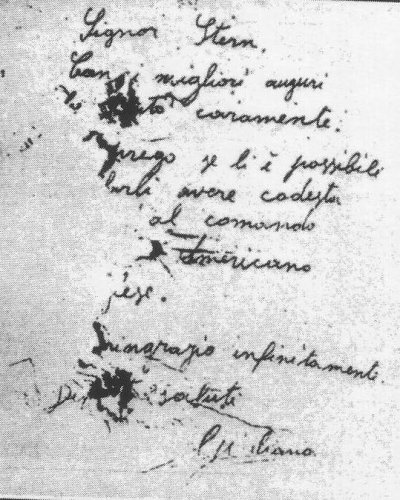 Signor Stern.
Con i migliori auguri
caramente.
prego se li è possibili
farli avere codesta
al comando
Americano
Ringrazio infinitamente
saluti